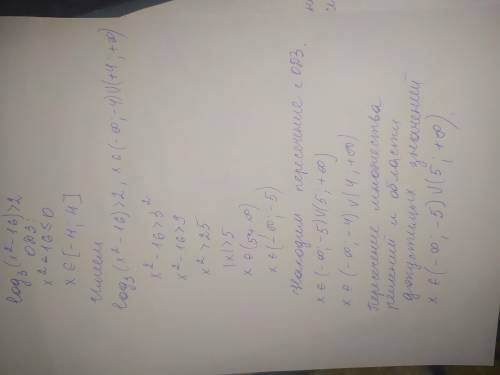 log₃(x²-16)>2
ОДЗ:
x²-16≤0
x∈[-4, 4]
Имеем
log₃(x²-16)>2, x∈(-∞;-4)∪(+4,+∞)
x²-16>3²
x²-16>9
x²>25
|x|>5
x∈(5;+∞)
x∈(-∞;-5)
Находим пересечение с ОДЗ.
x∈(-∞;-5)∪(5,+∞)
x∈(-∞;-4)∪(4,+∞)
Пересечение множества
решений и области
допустимых значений
x∈(-∞;-5)∪(5;+∞).